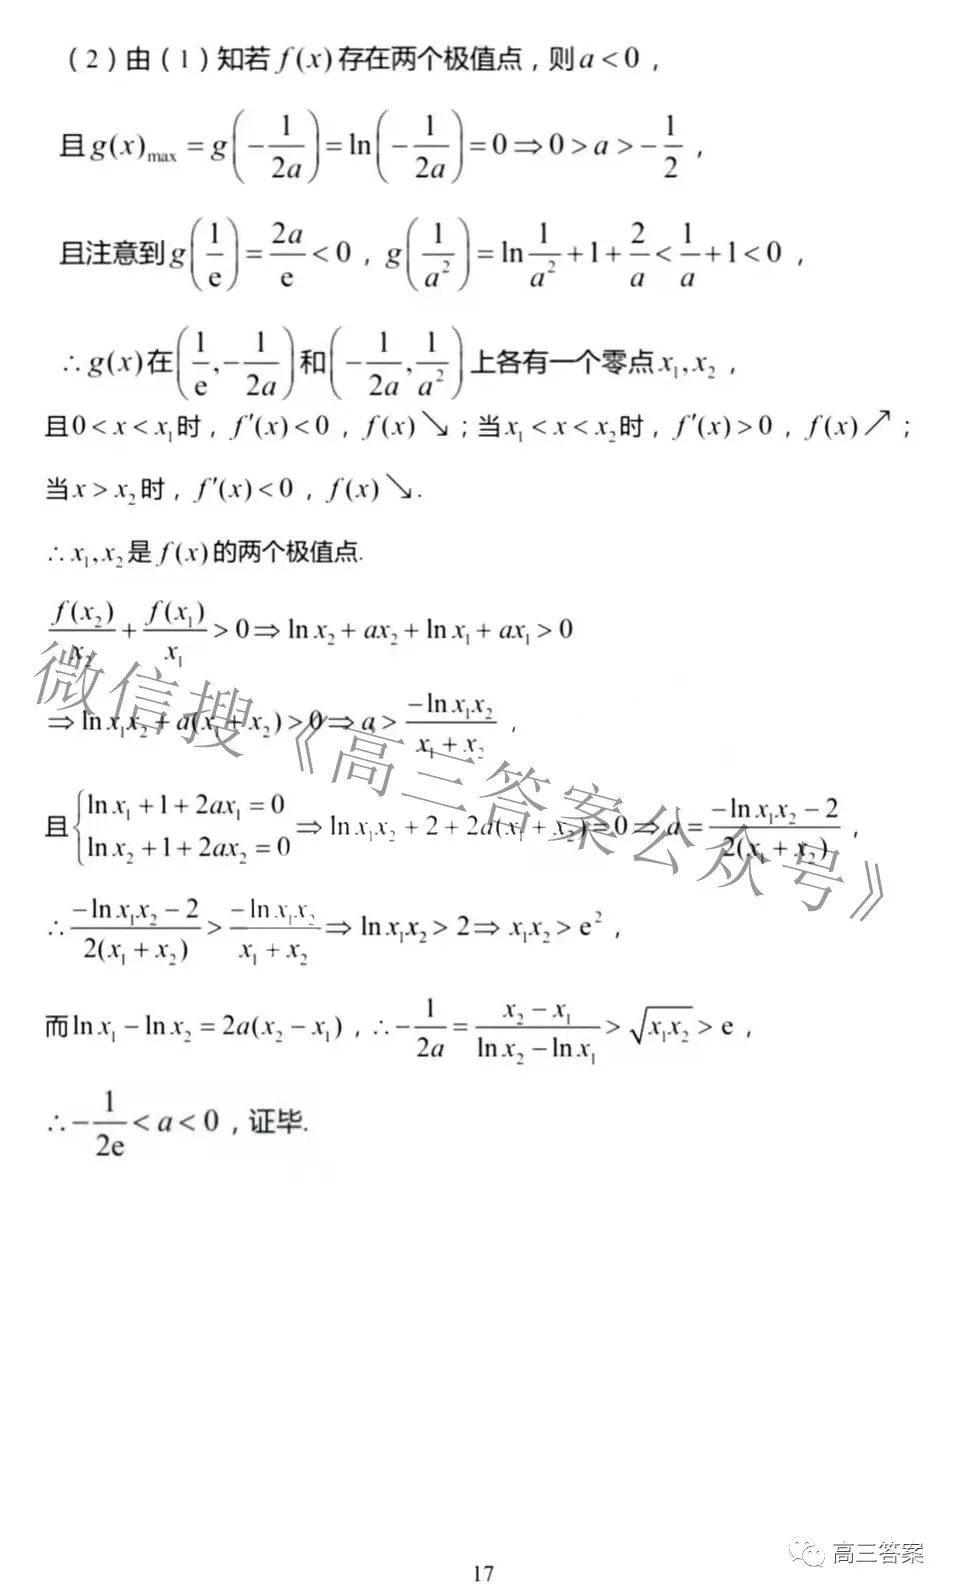 （2）由（1）知若 f(x) 存在两个极值点，则 a < 0，
且 g(x)max = g(-1/(2a)) = ln(-1/(2a)) = 0 ⇒ 0 > a > -1/2，
且注意到 g(1/e) = 2a/e < 0，g(1/a²) = ln 1/a² + 1 + 2/a < 1/a + 1 < 0，
∴ g(x) 在 (1/e, -1/(2a)) 和 (-1/(2a), 1/a²) 上各有一个零点 x₁, x₂，
且 0 < x < x₁ 时，f′(x) < 0，f(x)↘；当 x₁ < x < x₂ 时，f′(x) > 0，f(x)↗；
当 x > x₂ 时，f′(x) < 0，f(x)↘.
∴ x₁, x₂ 是 f(x) 的两个极值点.
f(x₂)/x₂ + f(x₁)/x₁ > 0 ⇒ ln x₂ + ax₂ + ln x₁ + ax₁ > 0
⇒ ln x₁x₂ + a(x₁ + x₂) > 0 ⇒ a > (-ln x₁x₂)/(x₁ + x₂)，
且 {ln x₁ + 1 + 2ax₁ = 0, ln x₂ + 1 + 2ax₂ = 0 ⇒ ln x₁x₂ + 2 + 2a(x₁ + x₂) = 0 ⇒ a = (-ln x₁x₂ - 2)/(2(x₁ + x₂))，
∴ (-ln x₁x₂ - 2)/(2(x₁ + x₂)) > (-ln x₁x₂)/(x₁ + x₂) ⇒ ln x₁x₂ > 2 ⇒ x₁x₂ > e²，
而 ln x₁ - ln x₂ = 2a(x₂ - x₁)，∴ -1/(2a) = (x₂ - x₁)/(ln x₂ - ln x₁) > √(x₁x₂) > e，
∴ -1/(2e) < a < 0，证毕.
微信搜《高三答案公众号》
高三答案
17